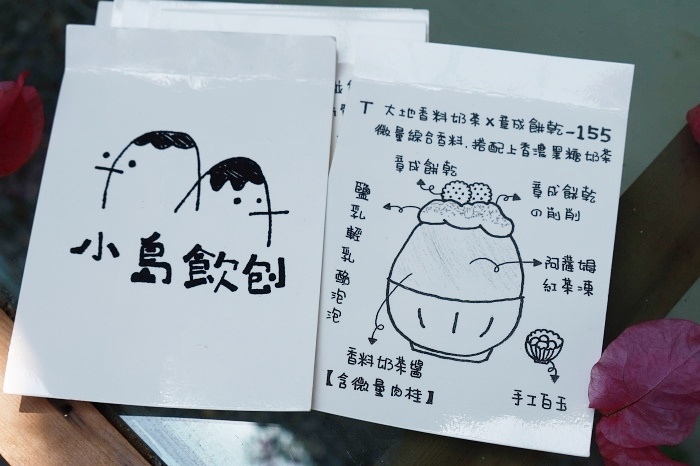 小島飲刨
T 大地香料奶茶x意成餅乾-155
微量綜合香料.搭配上香濃黑糖奶茶
意成餅乾
意成餅乾
の削削
鹽乳輕乳酪泡泡
阿薩姆
紅茶凍
香料奶茶醬
【含微量肉桂】
手工白玉